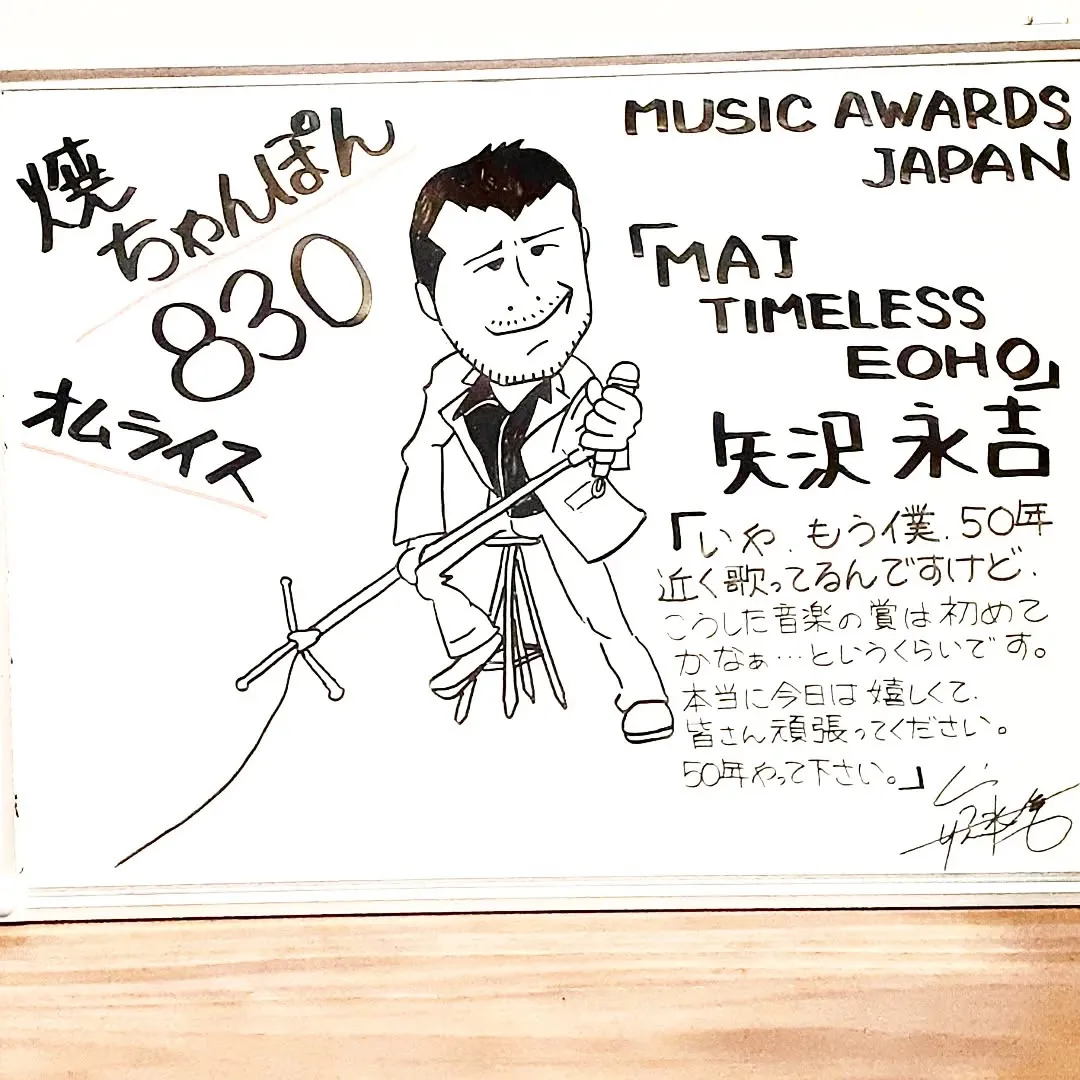 焼
ちゃんぽん
830
オムライス
MUSIC AWARDS
JAPAN
「MAJ
TIMELESS
EOHO」
矢沢永吉
「いや、もう僕、50年
近く歌ってるんですけど、
こうした音楽の賞は初めて
かなぁ…というくらいです。
本当に今日は嬉しくて、
皆さん頑張ってください。
50年やって下さい。」